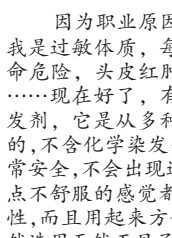 因为职业原因
我是过敏体质，每
命危险，头皮红肿
……现在好了，有
发剂，它是从多种
的,不含化学染发
常安全,不会出现过
点不舒服的感觉都
性,而且用起来方